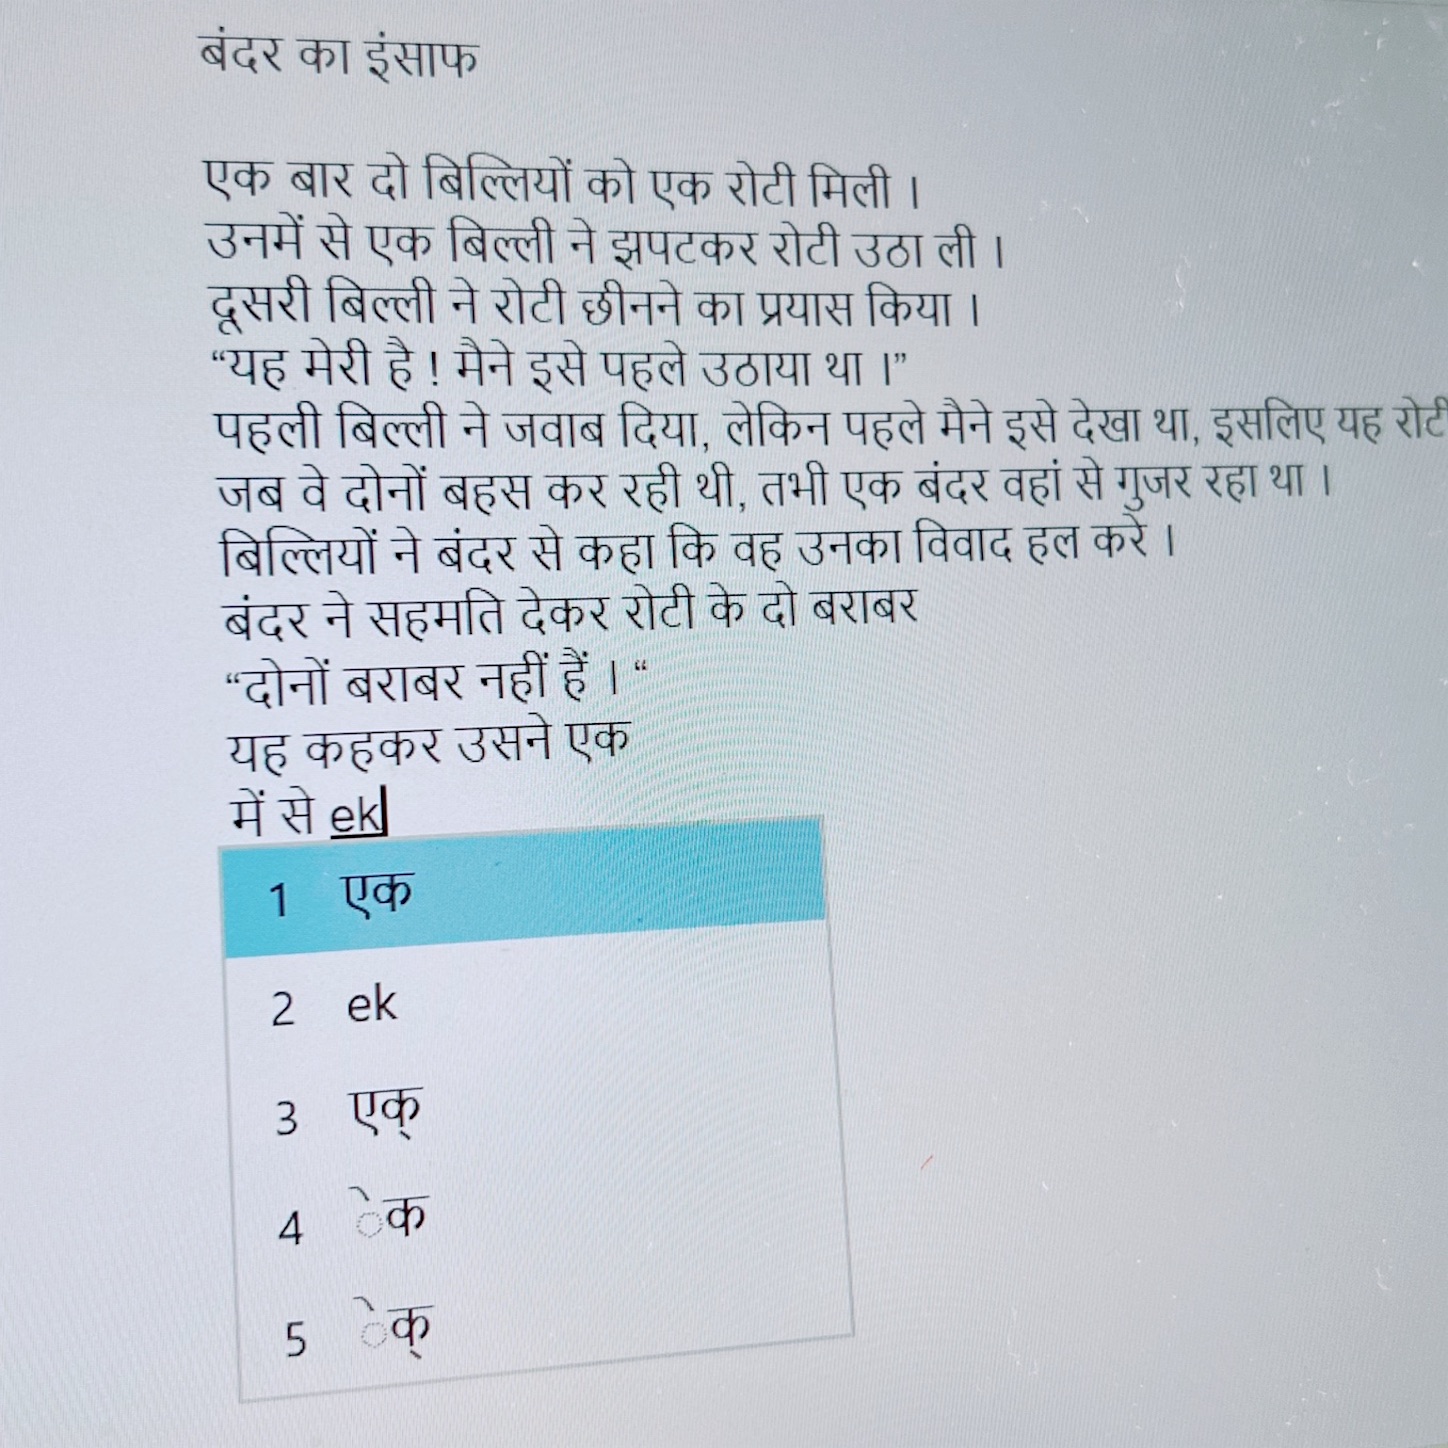 बंदर का इंसाफ
एक बार दो बिल्लियों को एक रोटी मिली ।
उनमें से एक बिल्ली ने झपटकर रोटी उठा ली ।
दूसरी बिल्ली ने रोटी छीनने का प्रयास किया ।
“यह मेरी है ! मैने इसे पहले उठाया था ।”
पहली बिल्ली ने जवाब दिया, लेकिन पहले मैने इसे देखा था, इसलिए यह रोटी
जब वे दोनों बहस कर रही थी, तभी एक बंदर वहां से गुजर रहा था ।
बिल्लियों ने बंदर से कहा कि वह उनका विवाद हल करे ।
बंदर ने सहमति देकर रोटी के दो बराबर
“दोनों बराबर नहीं हैं । “
यह कहकर उसने एक
में से ek
1 एक
2 ek
3 एक्
4 ेक
5 ेक्